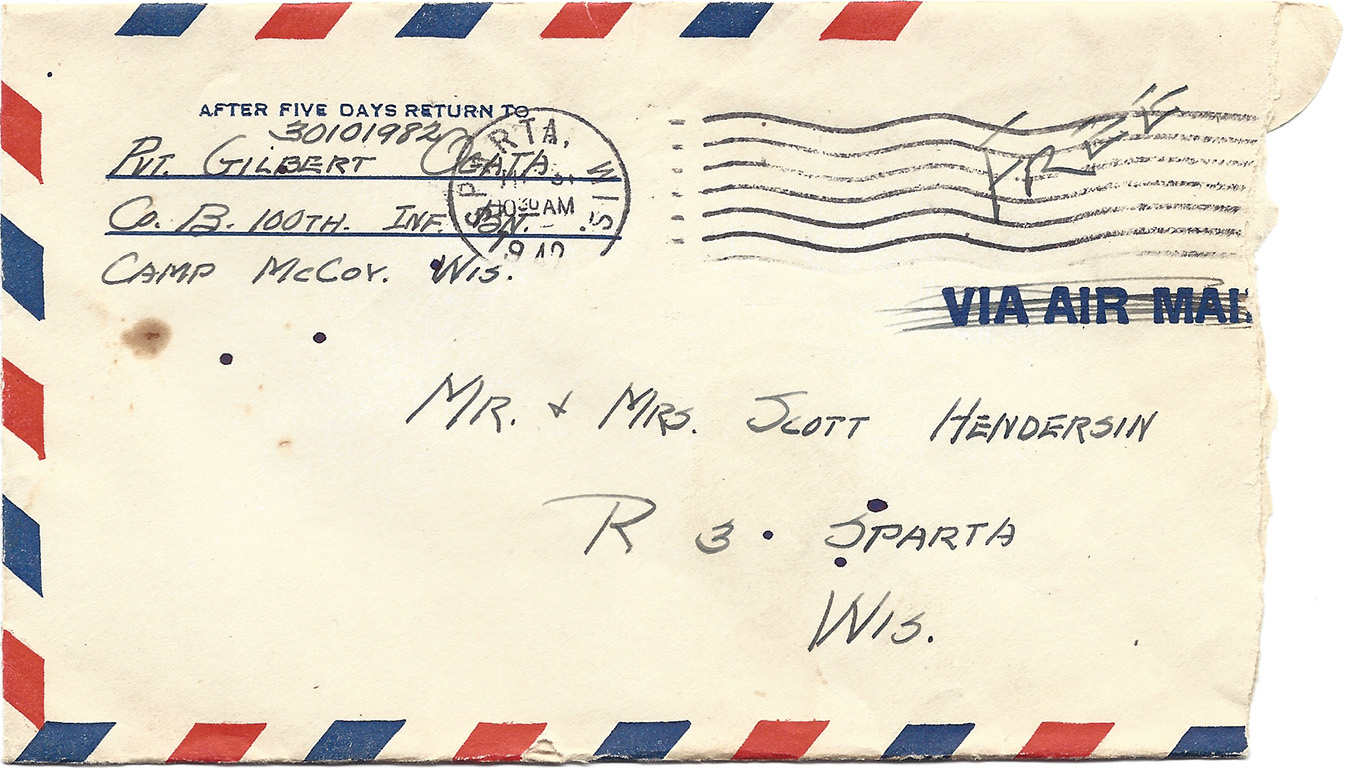 AFTER FIVE DAYS RETURN TO
30101982
PVT. GILBERT OGATA
CO. B. 100TH. INF. BN.
CAMP McCOY. WIS.
SPARTA, WIS.
10 30 AM
FREE
VIA AIR MAIL
MR. & MRS. SCOTT HENDERSIN
R 3. SPARTA
WIS.